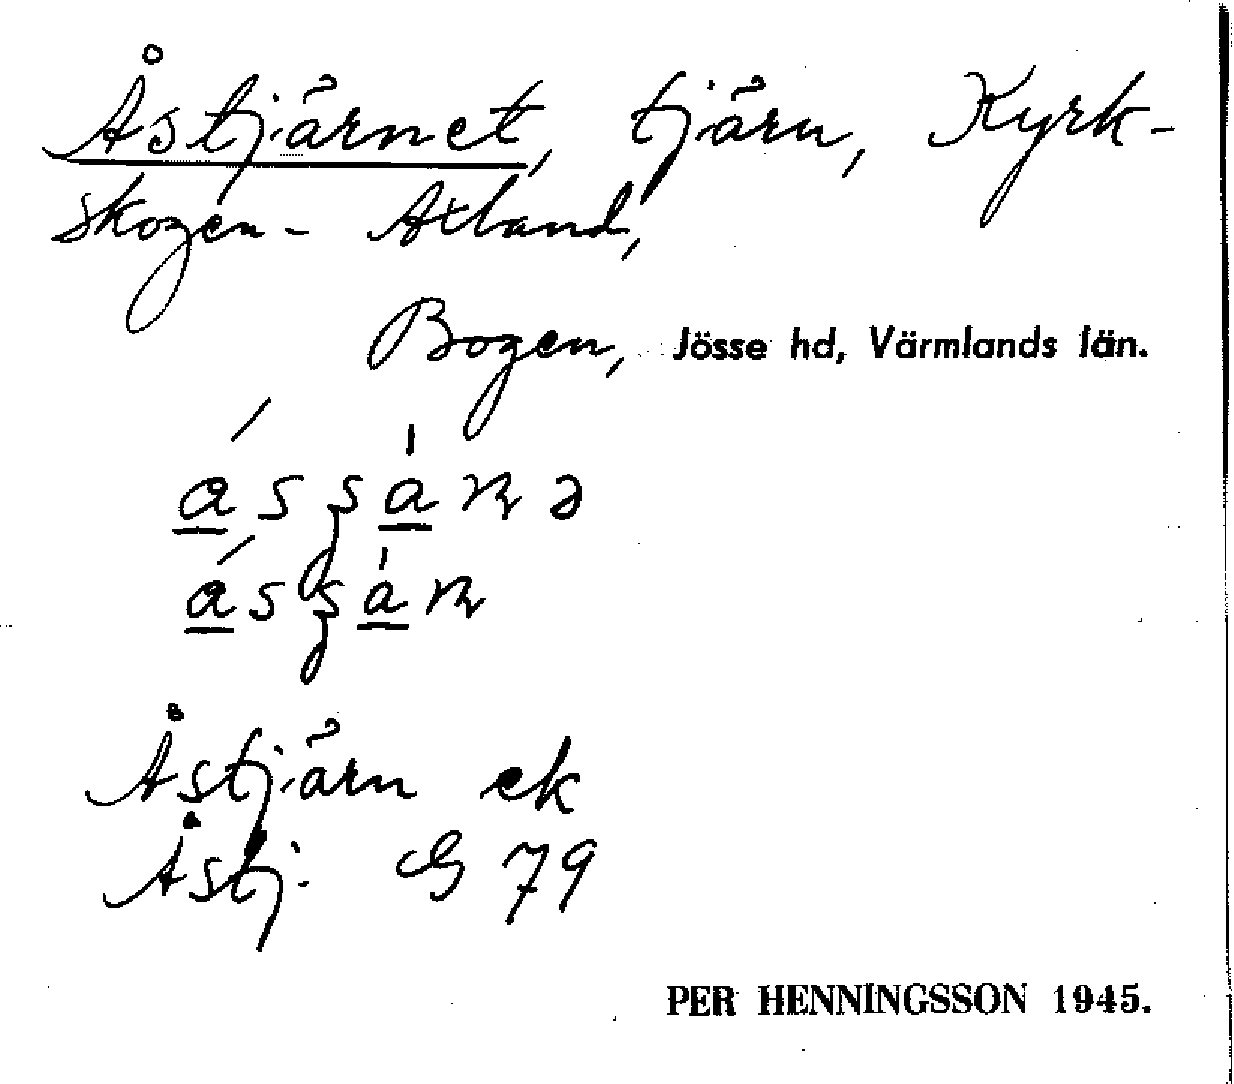 Åstjärnet, tjärn, Kyrk-
skogen - Axland,
Bogen, Jösse hd, Värmlands län.
Åstjärn ek
Åstj: G 79
PER HENNINGSSON 1945.